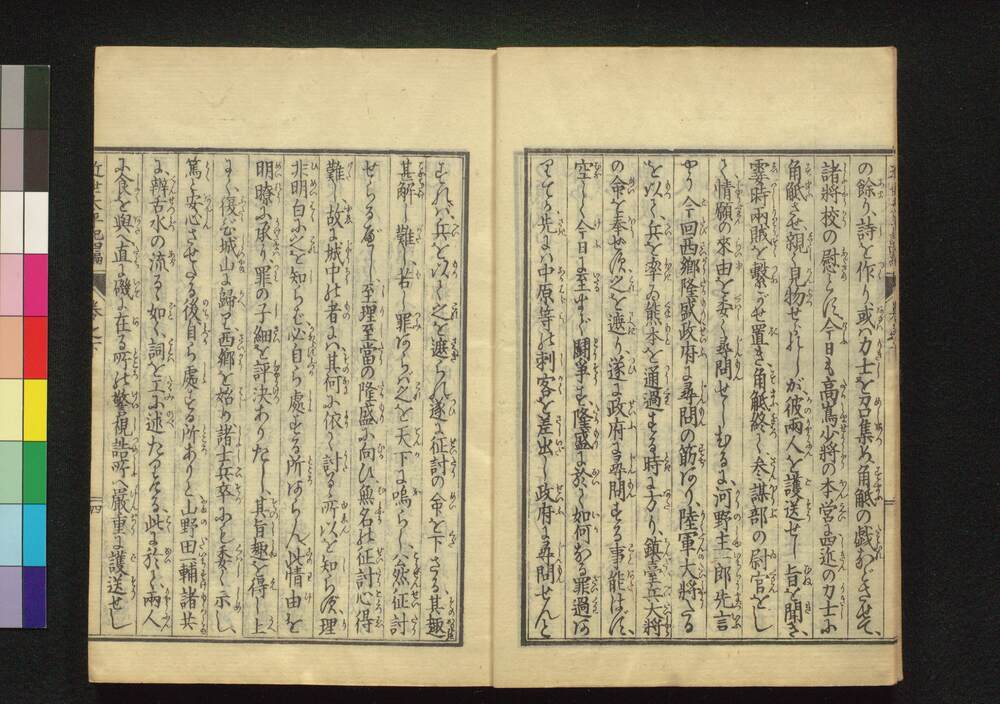 の餘り詩を作り或ハ力士を召集め角觝の戯などさせて
諸將校の慰らに今日も高嶌少將の本営に近の力士に
角觝させ親く見物せられしが彼両人を護送せし旨を聞き
霎時両賊を繋がせ置き角觝終て参謀部の尉官をし
て情願の来由を委く尋問せしむるに河野主一郎先言
やう今回西郷隆盛政府に尋問の筋あり陸軍大將たる
を以て兵を率ゐ熊本を通過する時に方り鎮臺兵大將
の命を奉せず之を遮り遂に政府に尋問する事能はず
空しく今日に至る闘爭す隆盛に於て如何なる罪過あ
りてか先に中原等の刺客を差出し政府に尋問せんと
すれハ兵を以て之を遮られ遂に征討の命を下さる其趣
其解し難し若し罪あらバ之を天下に鳴らし公然征討
せらるべし至理至當の隆盛に向ひ無名の征討心得
難し故に城中の者ハ其何に依て討るゝ所以を知らず理
非明白に之を知らバ必自ら處する所あらん此情由を
明瞭に承り罪の子細を評決ありたし其旨趣を得し上
にて復び城山に歸り西郷を始め諸士兵卒にも委く示し
篤と安心させたる後自ら處する所ありと山野田一輔諸共
に辨舌水の流るゝ如く詞を工に述たりける此に於て両人
に食を與へ直に磯に在る所の警視詰所へ嚴重に護送せし
近世太平記四編
巻之下
四